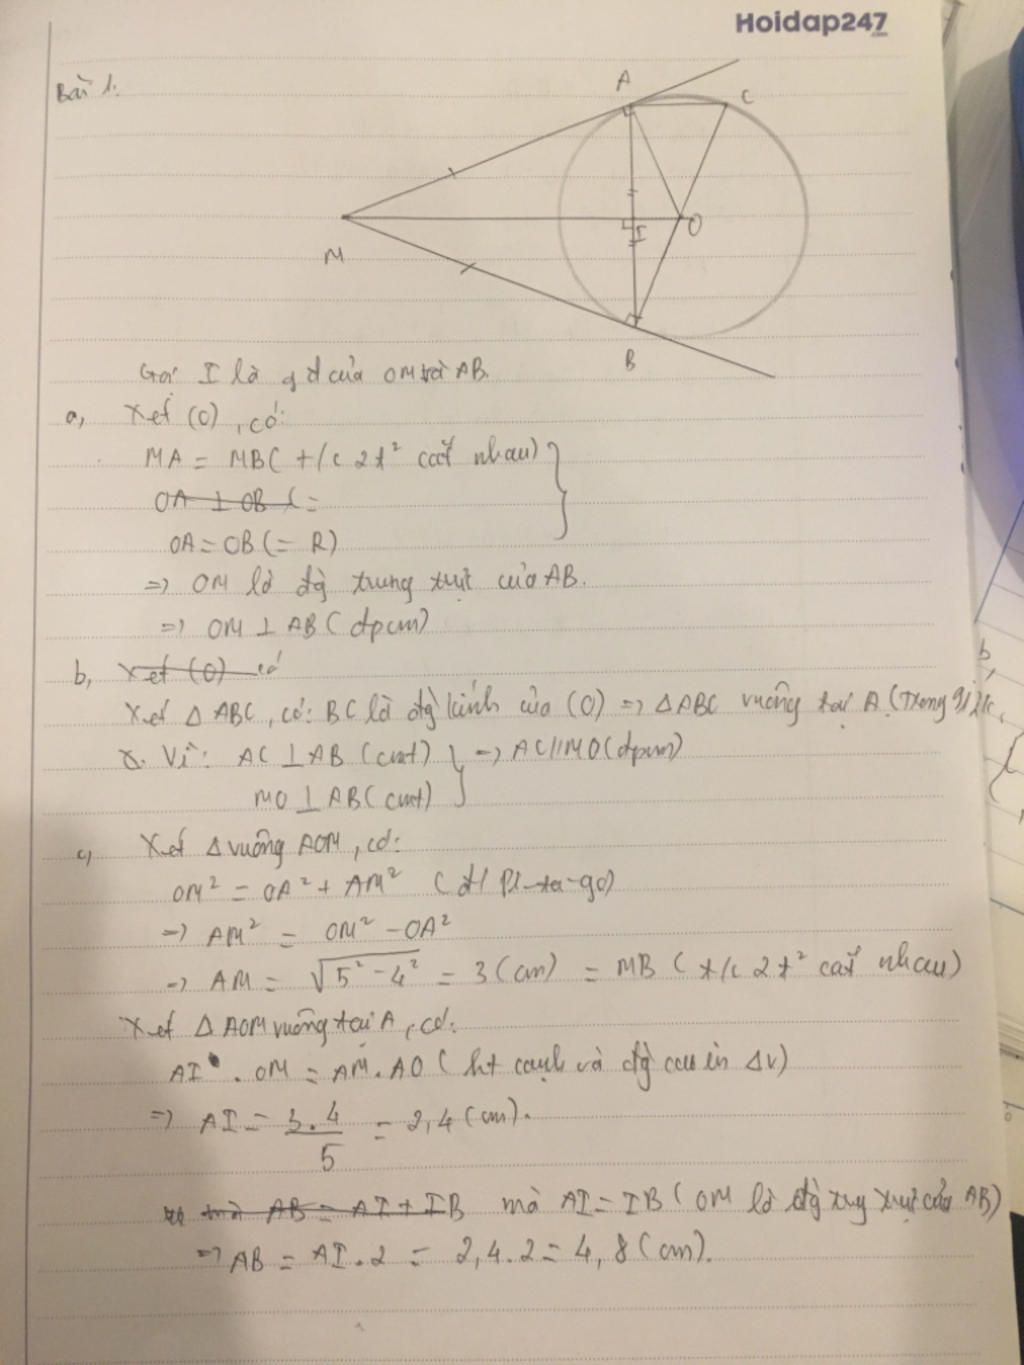 Hoidap247
.com
Bài 1:
A
C
M
I
O
B
Gọi I là gđ của OM và AB.
a, Xét (O), có:
MA = MB ( t/c 2t² cắt nhau)
OA ⊥ OB ( =
OA = OB (= R)
=> OM là đg trung trực của AB.
=> OM ⊥ AB (đpcm)
b, Xét (O) có
Xét Δ ABC, có: BC là đg kính của (O) => ΔABC vuông tại A. (Trong
Vì: AC ⊥ AB (cmt)
=> AC // MO (đpcm)
MO ⊥ AB (cmt)
c, Xét Δ vuông AOM, có:
OM² = OA² + AM² (đ/l Pi-ta-go)
=> AM² = OM² - OA²
=> AM = √5² - 4² = 3 (cm) = MB ( t/c 2t² cắt nhau)
Xét Δ AOM vuông tại A, có:
AI . OM = AM . AO ( ht cạnh và đg cao in Δv)
=> AI = 3.4
5
= 2,4 (cm).
mà AB = AI + IB mà AI = IB ( OM là đg trung trực của AB)
=> AB = AI . 2 = 2,4 . 2 = 4,8 (cm).
b,